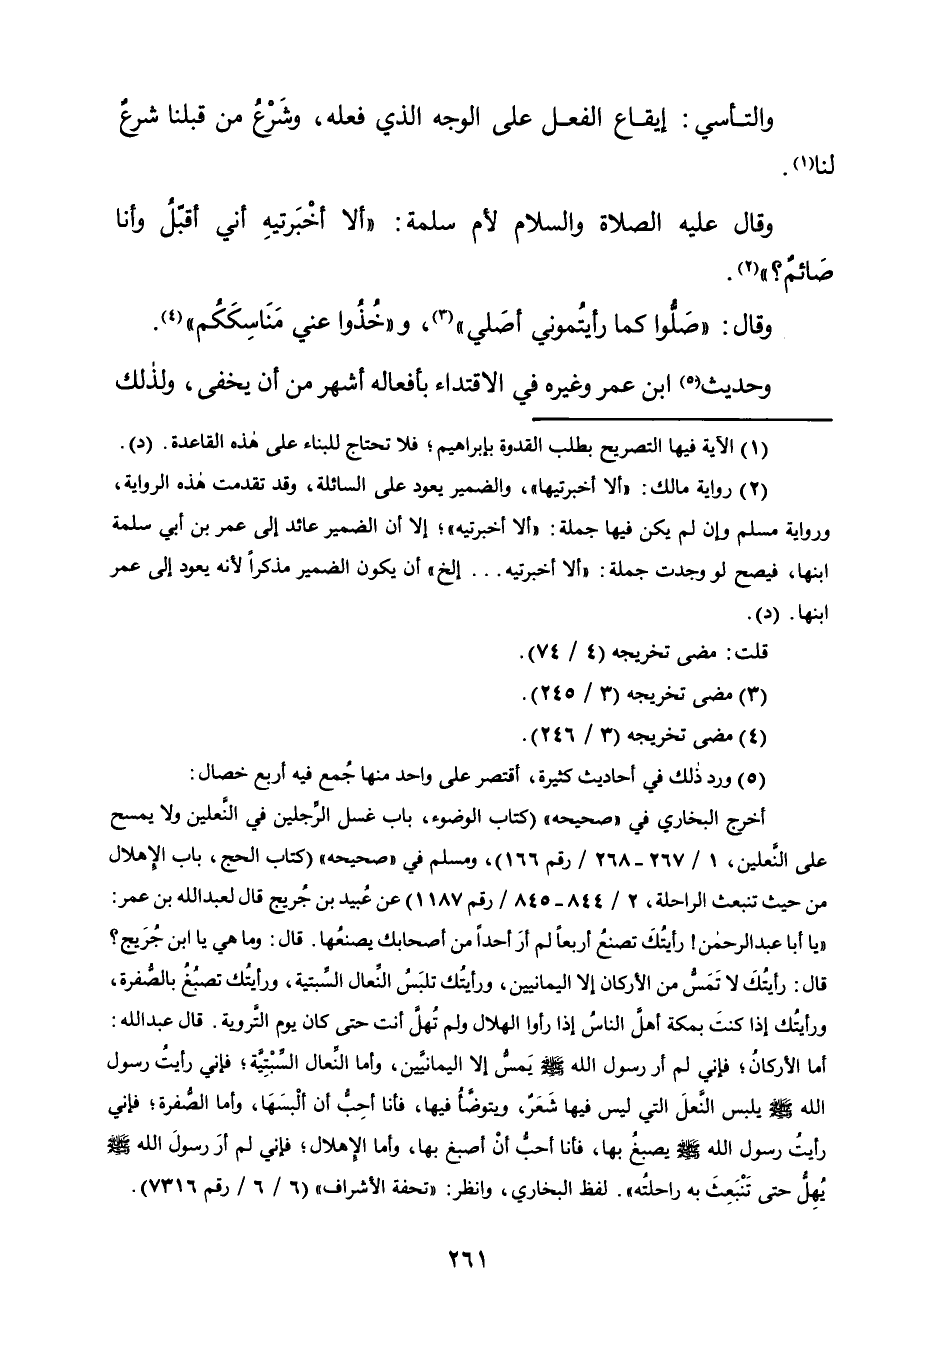 والتـأسي : إيقـاع الفعـل على الوجه الذي فعله، وشَرْعُ من قبلنا شرعٌ
لنا(١) .
وقال عليه الصلاة والسلام لأم سلمة: «ألا أخْبَرتيهِ أني أقبّلُ وأنا
صَائمٌ؟»(٢) .
وقال: «صَلُّوا كما رأيتُموني أصَلي»(٣)، و«خُذُوا عني مَنَاسِكَكُم»(٤).
وحديث(٥) ابن عمر وغيره في الاقتداء بأفعاله أشهر من أن يخفى، ولذٰلك
(١) الآية فيها التصريح بطلب القدوة بإبراهيم؛ فلا تحتاج للبناء على هٰذه القاعدة. (د).
(٢) رواية مالك: «ألا أخبرتيها»، والضمير يعود على السائلة، وقد تقدمت هٰذه الرواية،
ورواية مسلم وإن لم يكن فيها جملة: «ألا أخبرتيه»؛ إلا أن الضمير عائد إلى عمر بن أبي سلمة
ابنها، فيصح لو وجدت جملة: «ألا أخبرتيه... إلخ» أن يكون الضمير مذكراً لأنه يعود إلى عمر
ابنها. (د).
قلت: مضى تخريجه (٤ / ٧٤).
(٣) مضى تخريجه (٣ / ٢٤٥).
(٤) مضى تخريجه (٣ / ٢٤٦).
(٥) ورد ذٰلك في أحاديث كثيرة، أقتصر على واحد منها جُمع فيه أربع خصال:
أخرج البخاري في «صحيحه» (كتاب الوضوء، باب غسل الرِّجلين في النَّعلين ولا يمسح
على النَّعلين، ١ / ٢٦٧ - ٢٦٨ / رقم ١٦٦)، ومسلم في «صحيحه» (كتاب الحج، باب الإهلال
من حيث تنبعث الراحلة، ٢ / ٨٤٤ - ٨٤٥ / رقم ١١٨٧) عن عُبيد بن جُريج قال لعبدالله بن عمر:
«يا أبا عبدالرحمٰن! رأيتُكَ تصنعُ أربعاً لم أرَ أحداً من أصحابك يصنعُها. قال: وما هي يا ابن جُرَيج؟
قال: رأيتُكَ لا تَمَسُّ من الأركان إلا اليمانيين، ورأيتُك تلبَسُ النِّعال السِّبتية، ورأيتُك تصبُغُ بالصُّفرة،
ورأيتُك إذا كنتَ بمكة أهلَّ الناسُ إذا رأوا الهلال ولم تُهلَّ أنت حتى كان يوم التَّروية. قال عبدالله:
أما الأركانُ؛ فإني لم أر رسول الله ﷺ يَمسُّ إلا اليمانيَّين، وأما النِّعال السِّبْتِيَّة؛ فإني رأيتُ رسول
الله ﷺ يلبس النَّعلَ التي ليس فيها شَعَرٌ، ويتوضَّأُ فيها، فأنا أحِبُّ أن ألْبسَهَا، وأما الصُّفرة؛ فإني
رأيتُ رسول الله ﷺ يصبغُ بها، فأنا أحبُّ أنْ أصبغ بها، وأما الإهلال؛ فإني لم أرَ رسولَ الله ﷺ
يُهِلُّ حتى تَنْبَعِثَ به راحلتُه». لفظ البخاري، وانظر: «تحفة الأشراف» (٦ / ٦ / رقم ٧٣١٦).
٢٦١